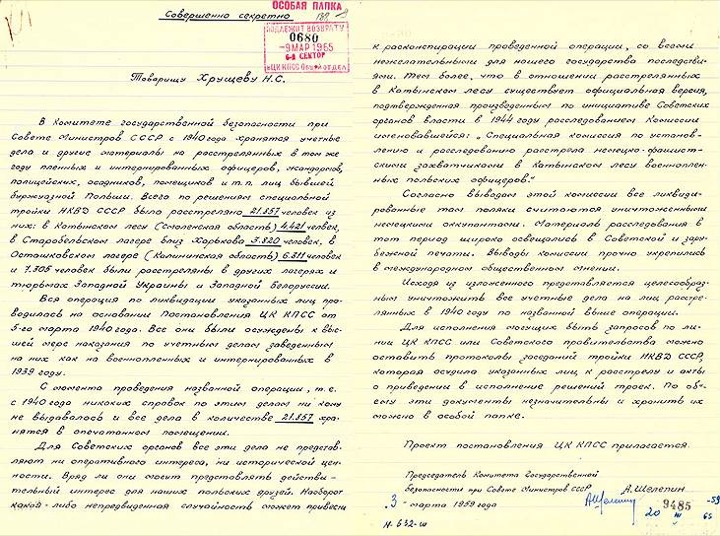 ОСОБАЯ ПАПКА
Совершенно секретно
ПОДЛЕЖИТ ВОЗВРАТУ
0680
-9МАР 1965
6-й СЕКТОР
ЦК КПСС Общий ОТДЕЛ
Товарищу Хрущеву Н.С.
В Комитете государственной безопасности при
Совете Министров СССР с 1940 года хранятся учетные
дела и другие материалы на расстрелянных в том же
году пленных и интернированных офицеров, жандармов,
полицейских, осадников, помещиков и т.п. лиц бывшей
буржуазной Польши. Всего по решениям специальной
тройки НКВД СССР было расстреляно 21.857 человек, из
них: в Катынском лесу (Смоленская область) 4.421 человек,
в Старобельском лагере близ Харькова 3.820 человек, в
Осташковском лагере (Калининская область) 6.311 человек
и 7.305 человек были расстреляны в других лагерях и
тюрьмах Западной Украины и Западной Белоруссии.
Вся операция по ликвидации указанных лиц про-
водилась на основании Постановления ЦК КПСС от
5-го марта 1940 года. Все они были осуждены к выс-
шей мере наказания по учетным делам, заведенным
на них как на военнопленных и интернированных в
1939 году.
С момента проведения названной операции, т.е.
с 1940 года никаких справок по этим делам никому
не выдавалось и все дела в количестве 21.857 хра-
нятся в опечатанном помещении.
Для Советских органов все эти дела не представ-
ляют ни оперативного интереса, ни исторической цен-
ности. Вряд ли они могут представлять действи-
тельный интерес для наших польских друзей. Наоборот
какая-либо непредвиденная случайность может привести
к расконспирации проведенной операции, со всеми
нежелательными для нашего государства последстви-
ями. Тем более, что в отношении расстрелянных
в Катынском лесу существует официальная версия,
подтвержденная произведенным по инициативе Советских
органов власти в 1944 году расследованием Комиссии
именовавшейся: „Специальная комиссия по установ-
лению и расследованию расстрела немецко-фашист-
скими захватчиками в Катынском лесу военноплен-
ных польских офицеров."
Согласно выводам этой комиссии все ликвиди-
рованные там поляки считаются уничтоженными
немецкими оккупантами. Материалы расследования в
тот период широко освещались в Советской и зару-
бежной печати. Выводы комиссии прочно укрепились
в международном общественном мнении.
Исходя из изложенного представляется целесообраз-
ным уничтожить все учетные дела на лиц, расстре-
лянных в 1940 году по названной выше операции.
Для исполнения могущих быть запросов по ли-
нии ЦК КПСС или Советского правительства можно
оставить протоколы заседаний тройки НКВД СССР,
которая осудила указанных лиц к расстрелу и акты
о приведении в исполнение решений троек. По объ-
ему эти документы незначительны и хранить их
можно в особой папке.
Проект постановления ЦК КПСС прилагается.
Председатель Комитета Государственной
безопасности при Совете Министров СССР А. Шелепин
АШелепин
3 - марта 1959 года
9485 -59
20 III 65
N-632-ш